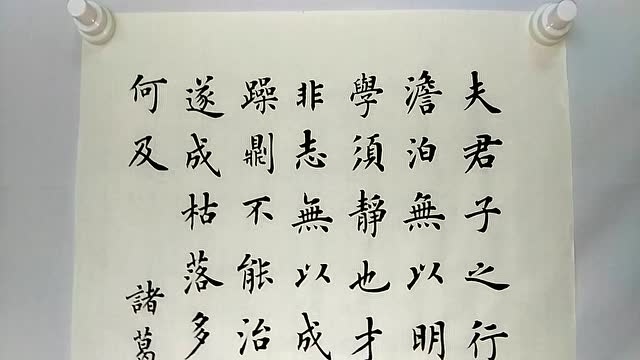 夫君子之行
澹泊無以明
學須靜也才
非志無以成
躁則不能治
遂成枯落多
何及
諸葛